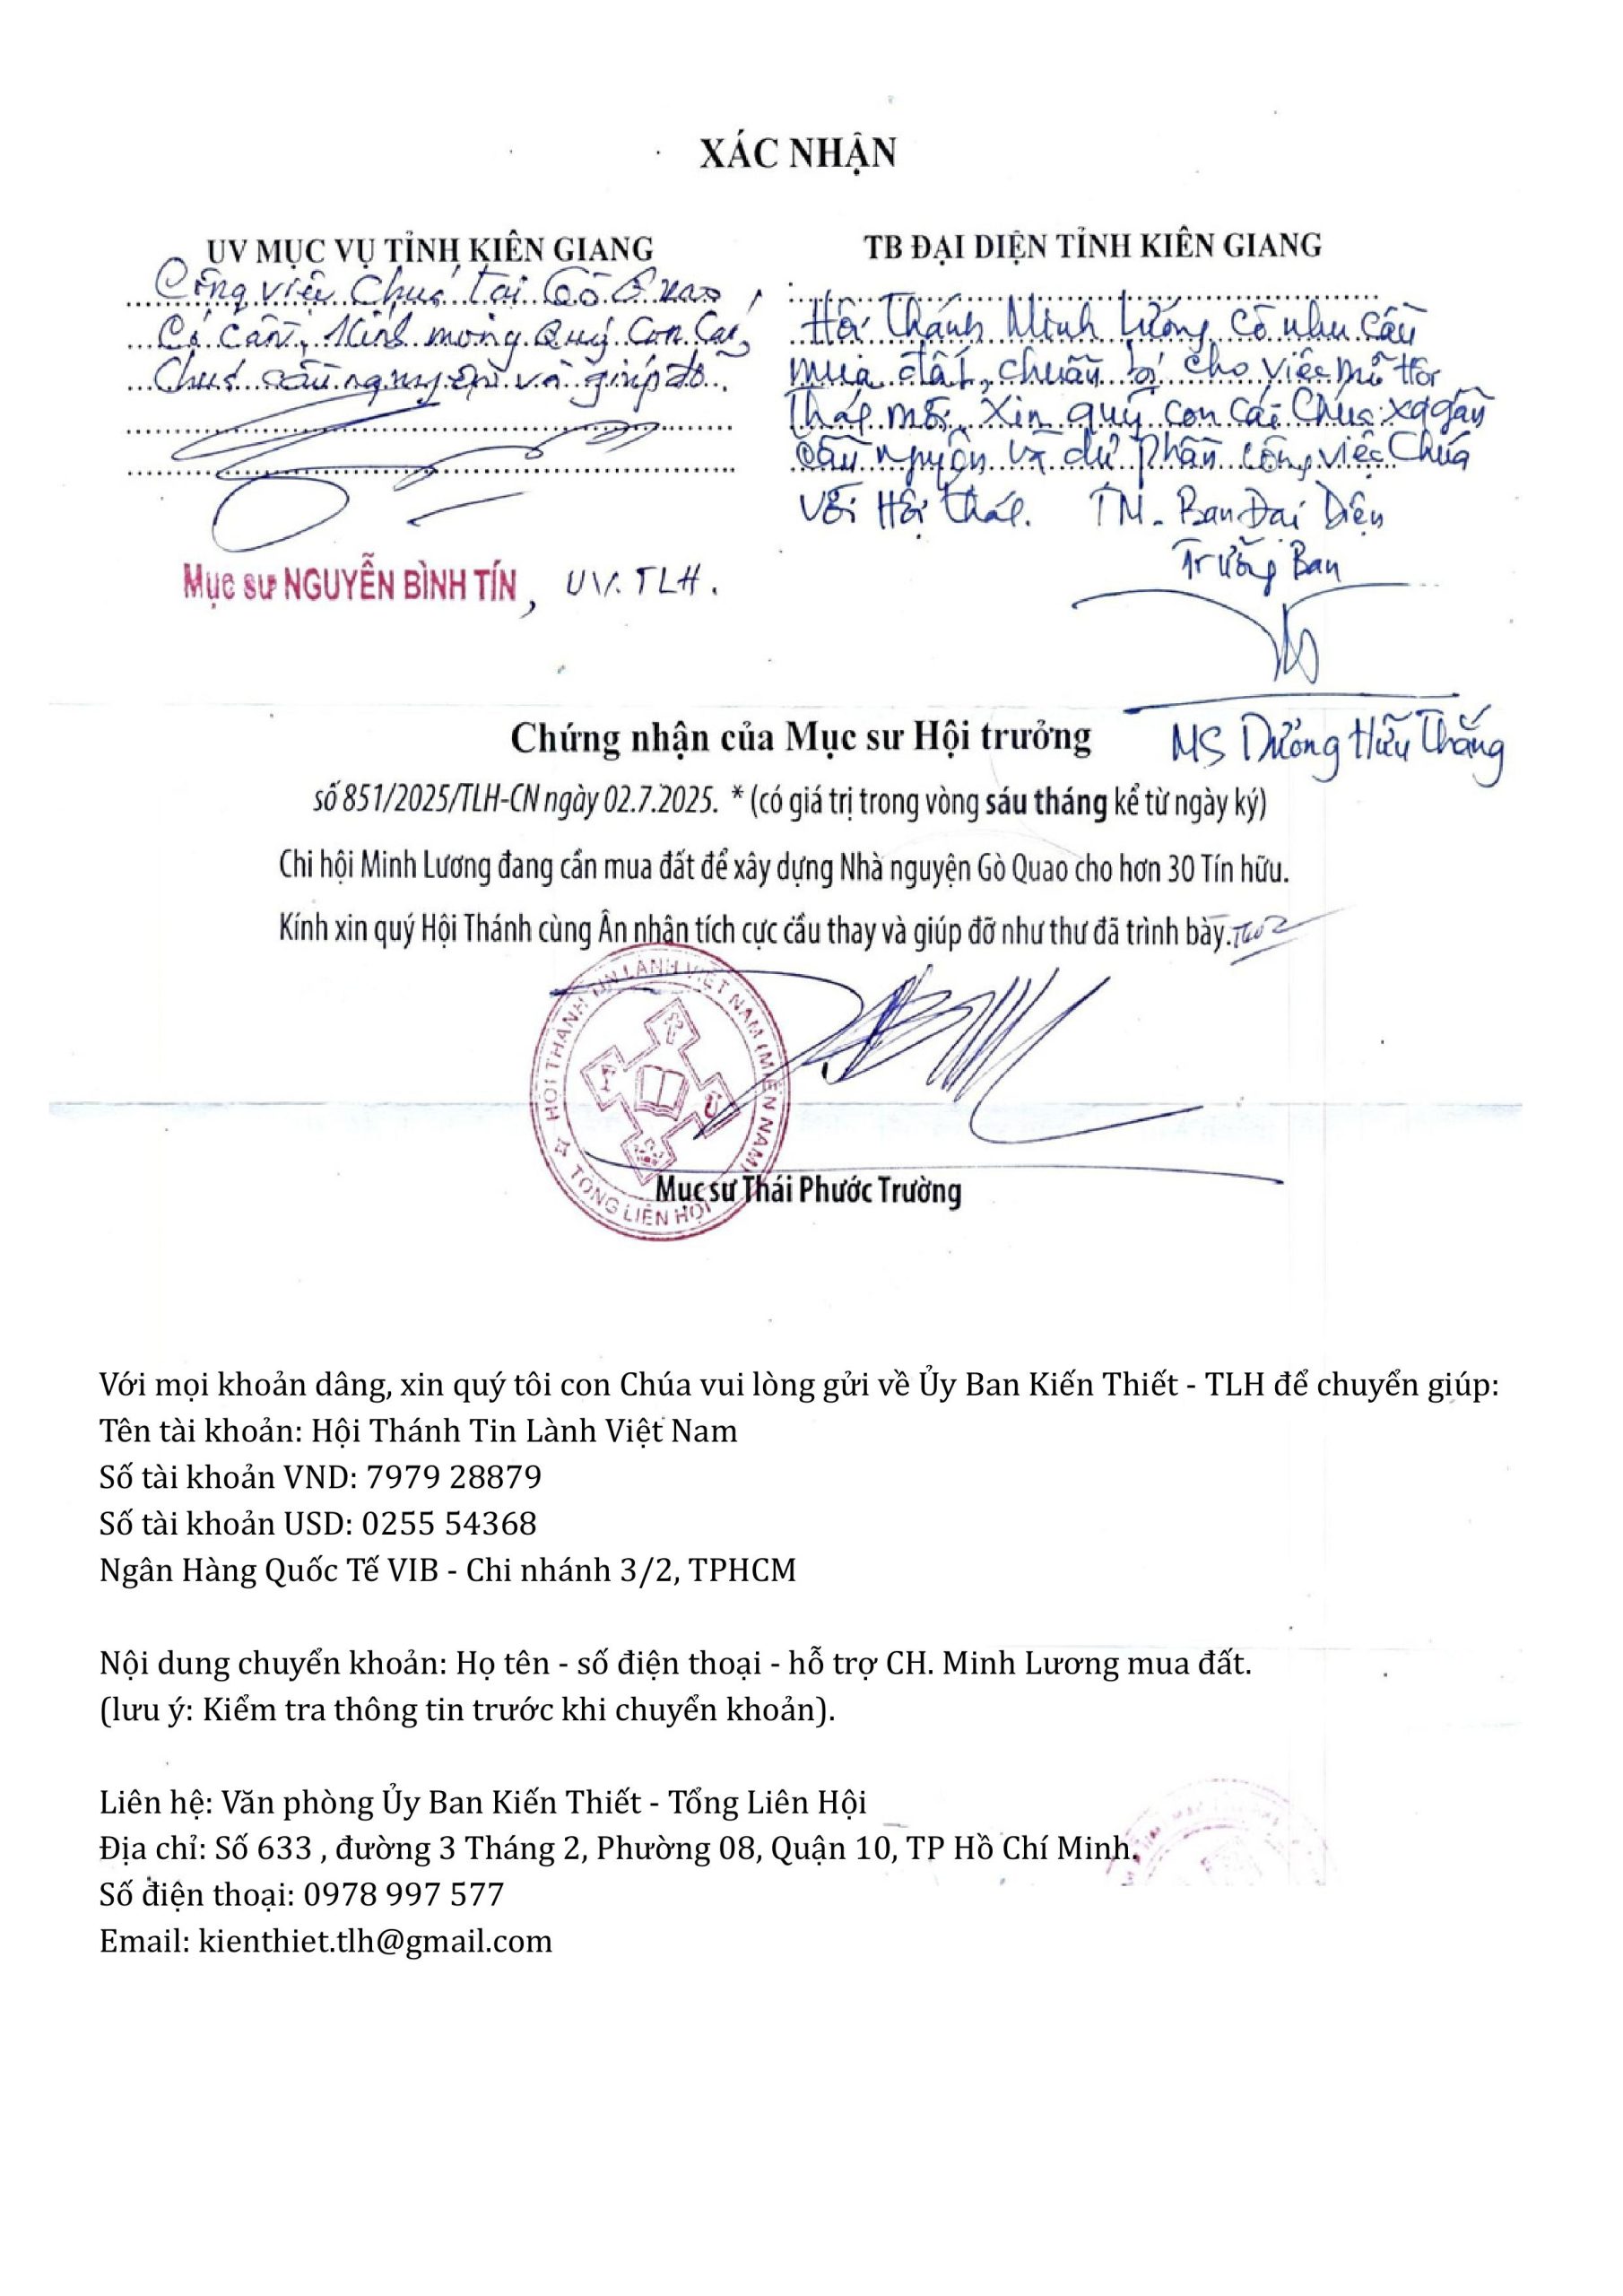 XÁC NHẬN
UV MỤC VỤ TỈNH KIÊN GIANG
Công việc Chúa tại Gò Quao,
Có cần, Kính mong Quý Con Cái
Chúa cầu nguyện và giúp đỡ.
Mục sư NGUYỄN BÌNH TÍN, UV. TLH.
TB ĐẠI DIỆN TỈNH KIÊN GIANG
Hội Thánh Minh Lương có nhu cầu
mua đất, chuẩn bị cho việc mở Hội
Thánh mới. Xin quý con cái Chúa xa gần
cầu nguyện và dự phần công việc Chúa
với Hội thánh. TM. Ban Đại Diện
Trưởng Ban
MS Dương Hữu Thắng
Chứng nhận của Mục sư Hội trưởng
số 851/2025/TLH-CN ngày 02.7.2025. * (có giá trị trong vòng sáu tháng kể từ ngày ký)
Chi hội Minh Lương đang cần mua đất để xây dựng Nhà nguyện Gò Quao cho hơn 30 Tín hữu.
Kính xin quý Hội Thánh cùng Ân nhân tích cực cầu thay và giúp đỡ như thư đã trình bày.
HỘI THÁNH TIN LÀNH VIỆT NAM (MIỀN NAM)
TỔNG LIÊN HỘI
Mục sư Thái Phước Trường
Với mọi khoản dâng, xin quý tôi con Chúa vui lòng gửi về Ủy Ban Kiến Thiết - TLH để chuyển giúp:
Tên tài khoản: Hội Thánh Tin Lành Việt Nam
Số tài khoản VND: 7979 28879
Số tài khoản USD: 0255 54368
Ngân Hàng Quốc Tế VIB - Chi nhánh 3/2, TPHCM
Nội dung chuyển khoản: Họ tên - số điện thoại - hỗ trợ CH. Minh Lương mua đất.
(lưu ý: Kiểm tra thông tin trước khi chuyển khoản).
Liên hệ: Văn phòng Ủy Ban Kiến Thiết - Tổng Liên Hội
Địa chỉ: Số 633 , đường 3 Tháng 2, Phường 08, Quận 10, TP Hồ Chí Minh.
Số điện thoại: 0978 997 577
Email: kienthiet.tlh@gmail.com